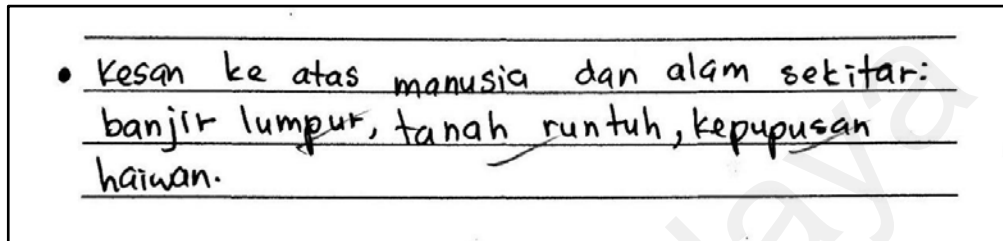 • Kesan ke atas manusia dan alam sekitar:
banjir lumpur, tanah runtuh, kepupusan
haiwan.